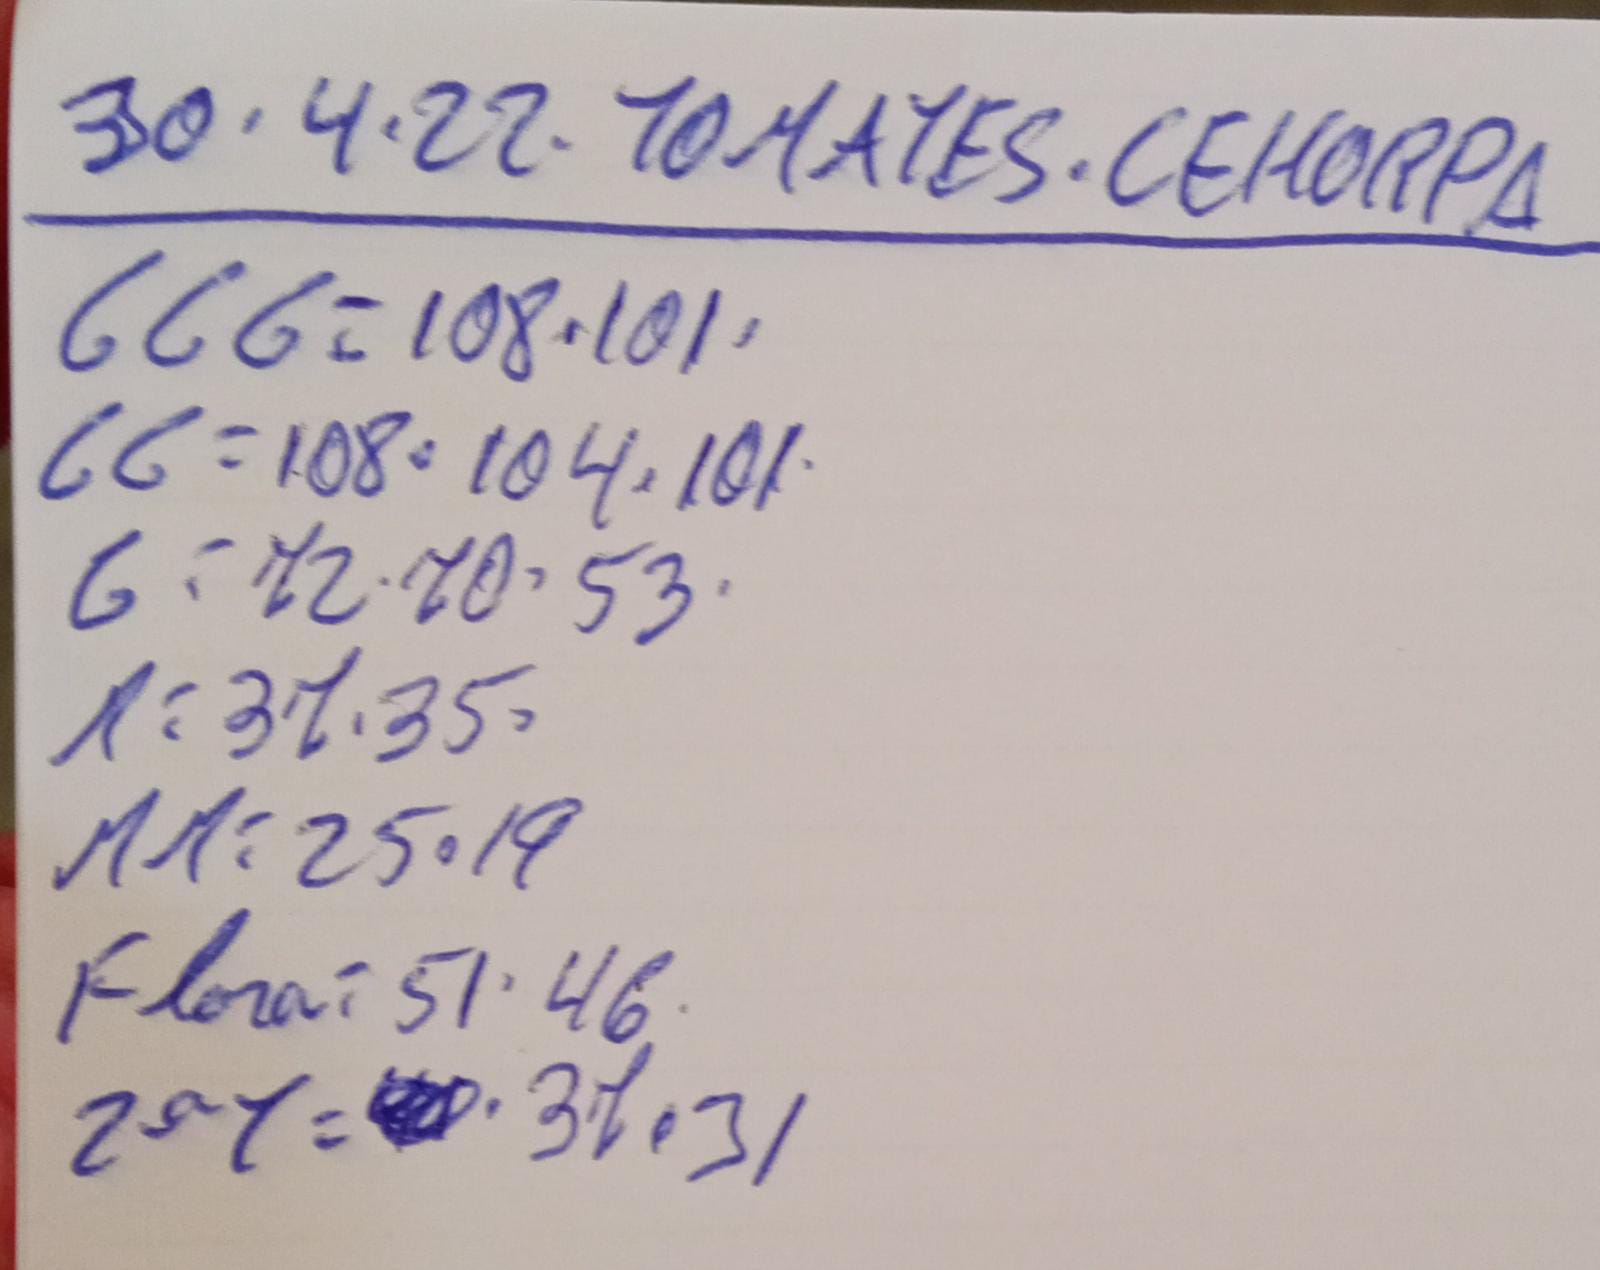 30.4.22. TOMATES.CEHORPA
GGG=108.101.
GG=108.104.101.
G=72.70.53.
M=37.35.
MM=25.19
Flora=51.46.
2ªT= .37.31